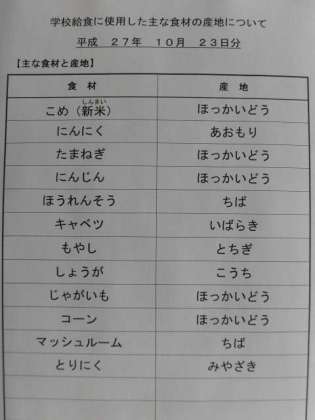 学校給食に使用した主な食材の産地について
平成 27年 10月 23日分
【主な食材と産地】
食 材 産 地
しんまい
こめ(新米) ほっかいどう
にんにく あおもり
たまねぎ ほっかいどう
にんじん ほっかいどう
ほうれんそう ちば
キャベツ いばらき
もやし とちぎ
しょうが こうち
じゃがいも ほっかいどう
コーン ほっかいどう
マッシュルーム ちば
とりにく みやざき